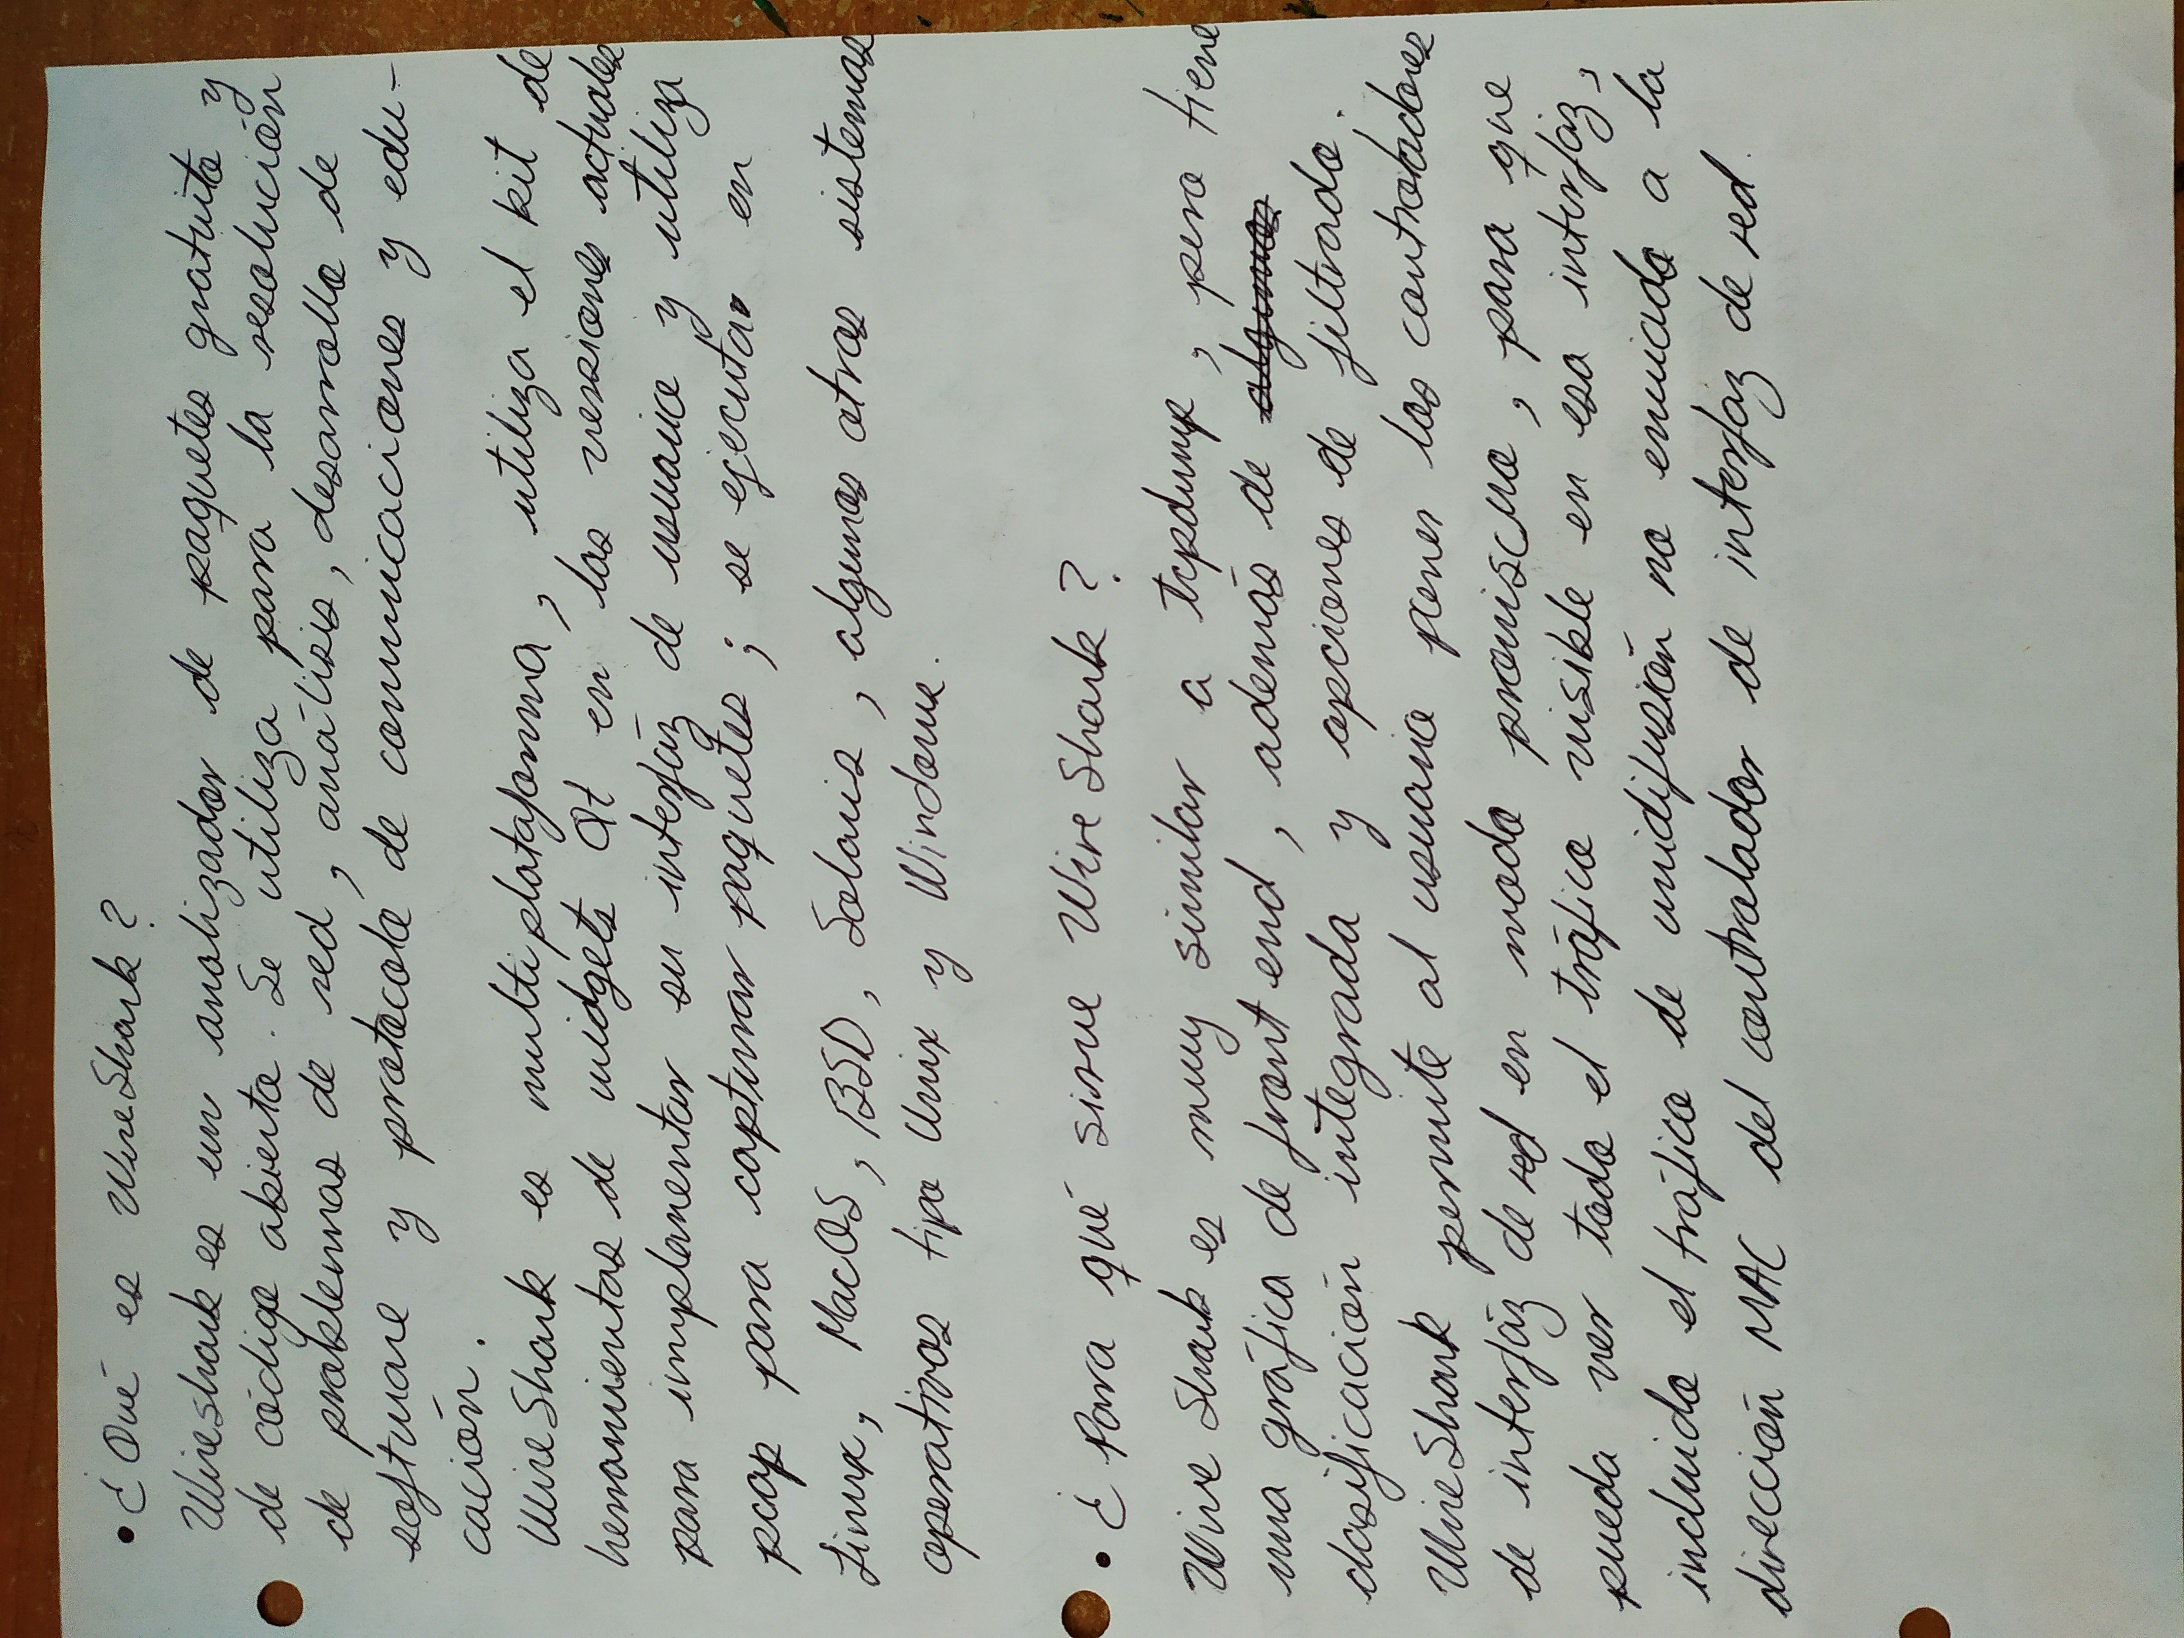 • ¿Qué es WireShark?
Wireshark es un analizador de paquetes gratuito y
de código abierto. Se utiliza para la resolución
de problemas de red, análisis, desarrollo de
software y protocolo de comunicaciones y edu-
cación.
WireShark es multiplataforma, utiliza el kit de
herramientas de widgets Qt en las versiones actuales
para implementar su interfáz de usuario y utiliza
pcap para capturar paquetes; se ejecutar en
Linux, MacOS, BSD, Solaris, algunos otros sistemas
operativos tipo Unix y Windows.
• ¿Para qué sirve WireShark?
WireShark es muy similar a tcpdump, pero tiene
una gráfica de front end, además de algunas
clasificación integrada y opciones de filtrado.
WireShark permite al usuario poner los controladores
de interfáz de red en modo promiscuo, para que
pueda ver todo el tráfico visible en esa interfáz,
incluido el tráfico de unidifusión no enviado a la
dirección MAC del controlador de interfáz de red.